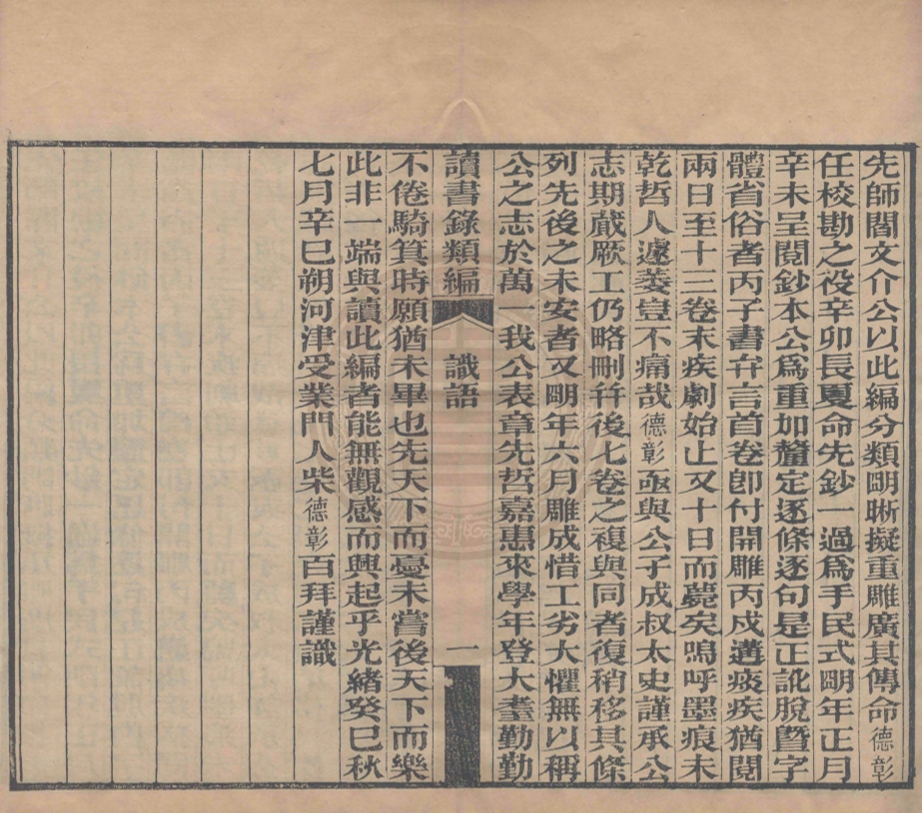 先師閻文介公以此編分類明晰擬重雕廣其傳命德彰
任校勘之役辛卯長夏命先鈔一過爲手民式明年正月
辛未呈閱鈔本公爲重加釐定逐條逐句是正訛脫暨字
體省俗者丙子書弁言首卷卽付開雕丙戌遘痰疾猶閱
兩日至十三卷末疾劇始止又十日而薨矣嗚呼墨痕未
乾哲人遽萎豈不痛哉德彰亟與公子成叔太史謹承公
志期蕆厥工仍略刪幷後七卷之複與同者復稍移其條
列先後之未安者又明年六月雕成惜工劣大懼無以稱
公之志於萬一我公表章先哲嘉惠來學年登大耋勤勤
讀書錄類編 識語 一
不倦騎箕時願猶未畢也先天下而憂未嘗後天下而樂
此非一端與讀此編者能無觀感而興起乎光緒癸巳秋
七月辛巳朔河津受業門人柴德彰百拜謹識